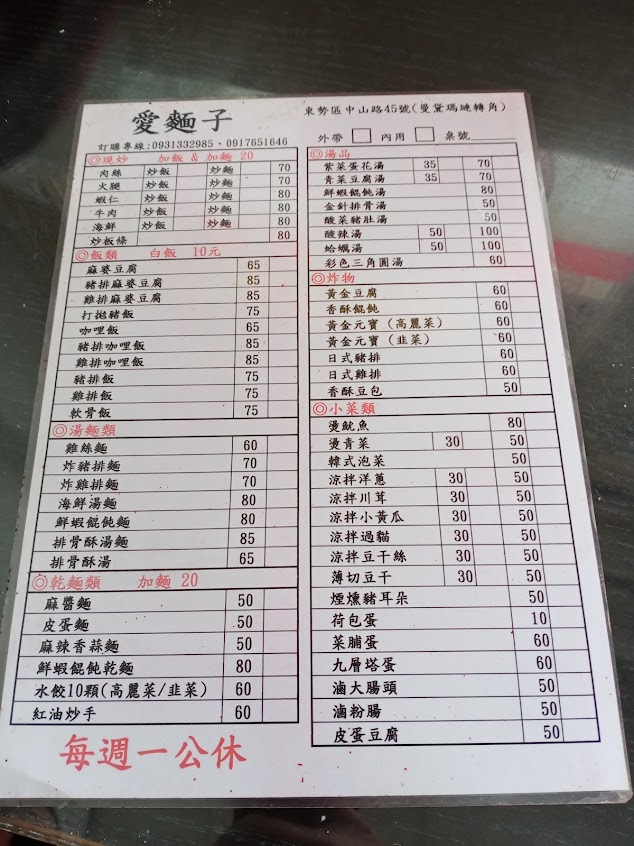 愛麵子
東勢區中山路45號(曼黛瑪璉轉角)
訂購專線:0931332985、0917651646
外帶 內用 桌號
◎現炒 加飯 & 加麵 20
肉絲 炒飯 炒麵 70
火腿 炒飯 炒麵 70
蝦仁 炒飯 炒麵 80
牛肉 炒飯 炒麵 80
海鮮 炒飯 炒麵 80
炒板條 80
◎飯類 白飯 10元
麻婆豆腐 65
豬排麻婆豆腐 85
雞排麻婆豆腐 85
打拋豬飯 75
咖哩飯 65
豬排咖哩飯 85
雞排咖哩飯 85
豬排飯 75
雞排飯 75
軟骨飯 75
◎湯麵類
雞絲麵 60
炸豬排麵 70
炸雞排麵 70
海鮮湯麵 80
鮮蝦餛飩麵 80
排骨酥湯麵 85
排骨酥湯 65
◎乾麵類 加麵 20
麻醬麵 50
皮蛋麵 50
麻辣香蒜麵 50
鮮蝦餛飩乾麵 80
水餃10顆(高麗菜/韭菜) 60
紅油炒手 60
每週一公休
◎湯品
紫菜蛋花湯 35 70
青菜豆腐湯 35 70
鮮蝦餛飩湯 80
金針排骨湯 50
酸菜豬肚湯 50
酸辣湯 50 100
蛤蠣湯 50 100
彩色三角圓湯 60
◎炸物
黃金豆腐 60
香酥餛飩 60
黃金元寶(高麗菜) 60
黃金元寶(韭菜) 60
日式豬排 60
日式雞排 60
香酥豆包 50
◎小菜類
燙魷魚 80
燙青菜 30 50
韓式泡菜 50
涼拌洋蔥 30 50
涼拌川茸 30 50
涼拌小黃瓜 30 50
涼拌過貓 30 50
涼拌豆干絲 30 50
薄切豆干 30 50
煙燻豬耳朵 50
荷包蛋 10
菜脯蛋 60
九層塔蛋 60
滷大腸頭 50
滷粉腸 50
皮蛋豆腐 50